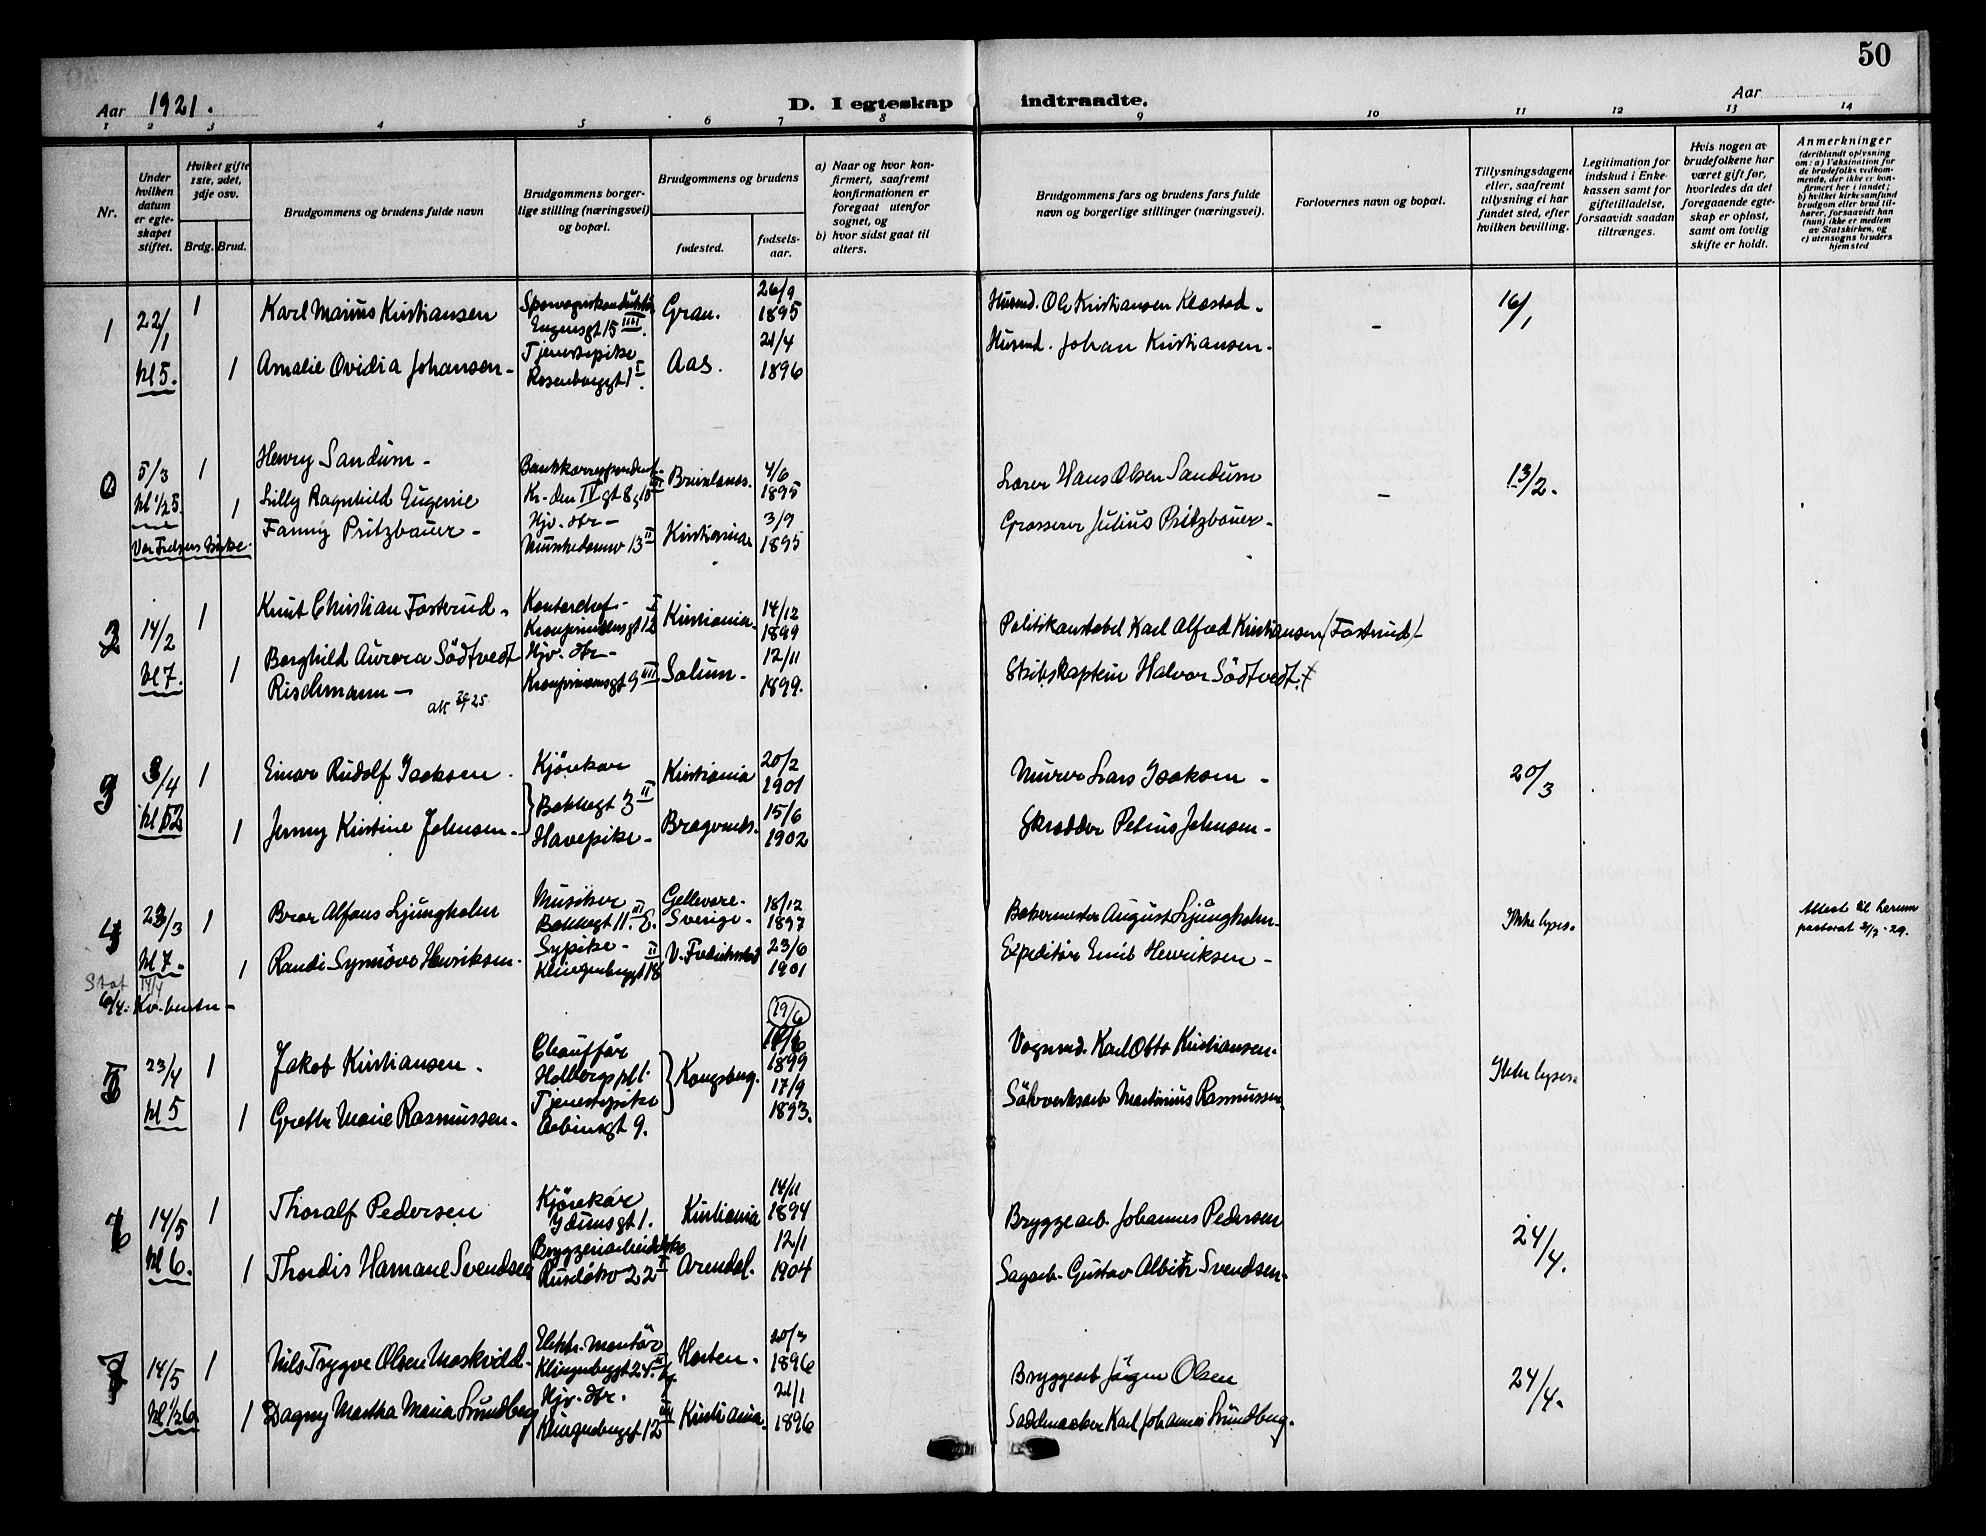 50
Aar 1921.
D. I egteskap indtraadte.
Aar
1 2 3 4 5 6 7 8 9 10 11 12 13 14
Nr.
Under hvilken datum er egteskapet stiftet.
Hvilket gifte 1ste, 2det, 3dje osv.
Brdg. Brud.
Brudgommens og brudens fulde navn
Brudgommens borgerlige stilling (næringsvei) og bopæl.
Brudgommens og brudens
fødested.
fødselsaar.
a) Naar og hvor konfirmert, saafremt konfirmationen er foregaat utenfor sognet, og
b) hvor sidst gaat til alters.
Brudgommens fars og brudens fars fulde navn og borgerlige stillinger (næringsvei).
Forlovernes navn og bopæl.
Tillysningsdagene eller, saafremt tillysning ei har fundet sted, efter hvilken bevilling.
Legitimation for indskud i Enkekassen samt for giftetilladelse, forsaavidt saadan tiltrænges.
Hvis nogen av brudefolkene har været gift før, hvorledes da det foregaaende egteskap er opløst, samt om lovlig skifte er holdt.
Anmerkninger
(deriblandt oplysning om: a) Vaksination for de brudefolks vedkommende, der ikke er konfirmert her i landet; b) hvilket kirkesamfund brudgom eller brud tilhører, forsaavidt han (hun) ikke er medlem av Statskirken, og c) utensogns bruders hjemsted
1 22/1 1 Karl Marius Kristiansen Sporvognskonduktör Eugensgt 15 IIII. Gran. 26/9 1895 Husmd. Ole Kristiansen Klæstad - 16/1
kl 5. 1 Amalie Ovidia Johansen - Tjenestepike Rosenborggt 1 I. Aas. 21/4 1896 Husmd. Johan Kristiansen.
5/3 1 Henry Sandum - Bankkorrespondent Kr. den IV gt 8, Brunlanes. 4/6 1895 Lærer Hans Olsen Sandum - 13/2.
kl 1/2 5. 1 Lilly Ragnhild Eugenie
Fanny Pritzbauer - Hjv. dtr - Munkedamsv 13 II Kristiania 3/9 1895 Grosserer Julius Pritzbauer -
Vor Frelsers kirke.
14/2 1 Knut Christian Fosterud - Kontorchef - Kronprinsensgt 12 I Kristiania. 14/12 1899 Politikonstabel Karl Alfred Kristiansen (Fosterud) -
kl 7. 1 Borghild Aurora Södtvedt
Rischmann - Hjv. dtr - Kronprinsensgt 9 III Solum - 12/11 1899. Skibskaptein Halvor Södtvedt. †
3/4 1 Einar Rudolf Isaksen. Kjörekar Kristiania 20/2 1901 Murer Lars Isaksen - 20/3
1 Jenny Kristine Johnsen - Bakkegt 3 II Havepike - Bragernes. 15/6 1902 Skrædder Petrus Johnsen -
23/3 1 Bror Alfons Ljungholm Musiker Bakkegt 11. III Gellevare - Sverige - 18/12 1897 Bakermester August Ljungholm - Ikke lyses. Attest til
kl 7. 1 Randi Synnöve Henriksen. Sypike - Klingenberggt II V. Fredrikstad 23/6 1901 Expeditör Emil Henriksen -
23/4 1 Jakob Kristiansen. Chaufför Holbergs pl 1. Kongsberg. 19/6 1899 Vognmd. Karl Otto Kristiansen. Ikke lyses.
kl 5 1 Grethe Marie Rasmussen. Tjenestepike Sehestedsgt 9. 17/9 1893. Sölvverksarb Martinius Rasmussen.
14/5 1 Thoralf Pedersen Kjörekar Idunsgt 1. Kristiania 14/11 1894 Bryggearb. Johannes Pedersen 24/4.
kl 6. 1 Thordis Hamane Svendsen Bryggeriarbeiderske Ruselökv 22 II Arendal. 12/1 1904 Sagarb. Gustav Albin Svendsen -
14/5 1 Nils Trygve Olsen Moskvild - Elektr. montör Klingenberggt 24. Horten. 20/3 1896 Bryggearb Jörgen Olsen 24/4.
kl 1/2 6 1 Dagny Martha Maria Lundberg Hjv. dtr. Klingenberggt 12 III Kristiania. 21/1 1896 Sadelmaaker Karl Johannes Lundberg.